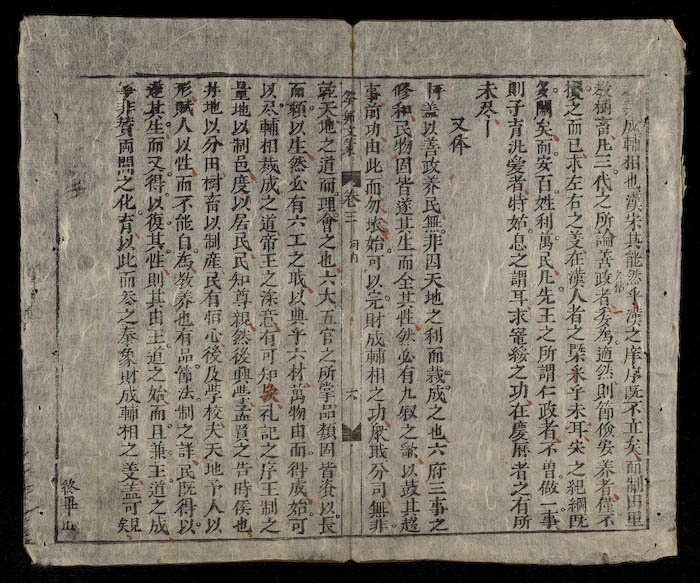 成輔相也漢宋其能然乎漢之庠序既不立矣而制田里
教樹畜凡三代之所論善政者委為適然則節儉安养者僅不
擾之而已求左右之義在漢人者之槩釆乎未耳宋之紀綱既
多闕矣而安百姓利萬民凡先王之所謂仁政者不曾做一事
則子育泚愛者特姑息之謂耳求寧綏之功在慶曆者之有所
未尽丨
又体
蓋以善政养民無非因天地之利而裁成之也六府三事之
修和民物固皆遂其生而全其性然必有九叙之歌以鼓其趨
事前功由此而勿坏始可以完財成輔相之功衆职分司無非
卷三 六
天地之道而理會之也六大五官之所掌品類固皆資以長
而賴以生然必有六工之职以典乎六材萬物由而得成始可
以尽輔相裁成之道帝王之深意有可知矣礼記之序王制之
量地以制邑度以居民民知尊親然後興學盖賢之告時侯也
井地以分田樹畜以制產民有恒心後及學校大天地予人以
形賦人以性而不能自為教养也有品節法制之詳民既得以
遂其生而又得以復其性則其由王道之始而且兼王道之成
寧非贊两間之化育以此而參之泰象財成輔相之義盖可見矣
終畢